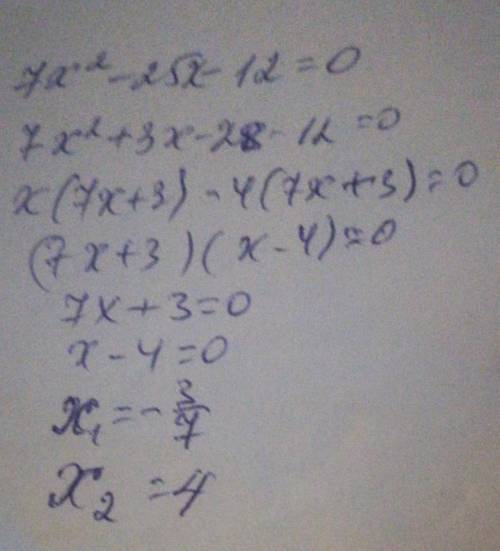 7x² - 25x - 12 = 0
7x² + 3x - 28 - 12 = 0
x(7x+3) - 4(7x+3) = 0
(7x+3)(x-4) = 0
7x + 3 = 0
x - 4 = 0
x₁ = -3/7
x₂ = 4